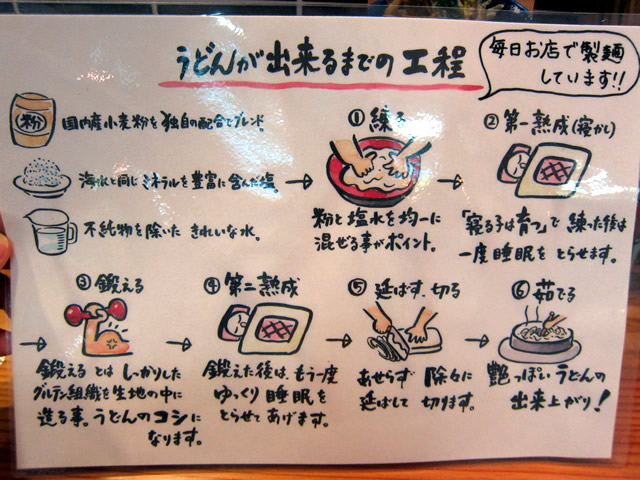 うどんが出来るまでの工程
毎日お店で製麺
しています!!
粉
国内産小麦粉を独自の配合でブレンド。
海水と同じミネラルを豊富に含んだ塩
不純物を除いたきれいな水。
①練る
粉と塩水を均一に
混ぜる事がポイント。
②第一熟成(寝かし)
「寝る子は育つ」で練った後は
一度睡眠をとらせます。
③鍛える
鍛えるとはしっかりした
グルテン組織を生地の中に
造る事。うどんのコシに
なります。
④第二熟成
鍛えた後は、もう一度
ゆっくり睡眠を
とらせてあげます。
⑤延ばす、切る
あせらず除々に
延ばして切ります。
⑥茹でる
艶っぽいうどんの
出来上がり!